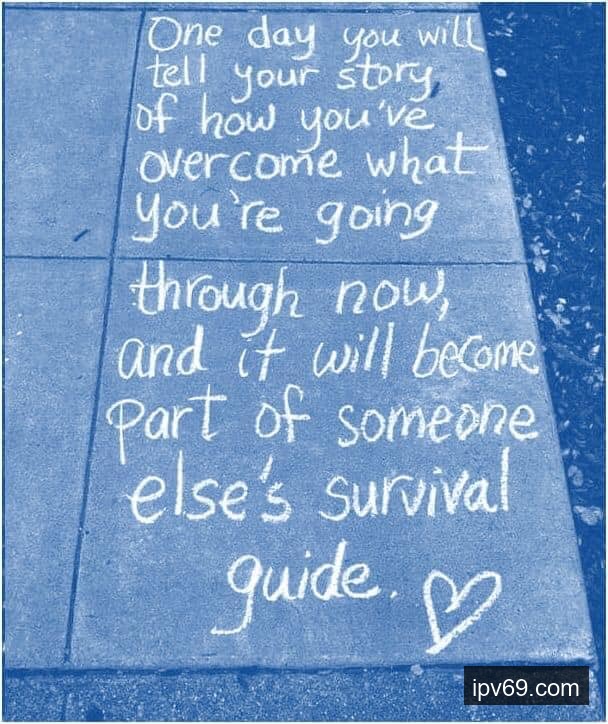 One day you will
tell your story
of how you've
overcome what
you're going
through now,
and it will become
part of someone
else's survival
guide.
ipv69.com